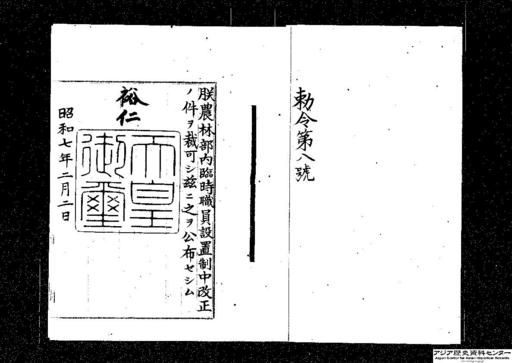 勅令第八號
朕農林部內臨時職員設置制中改正
ノ件ヲ裁可シ玆ニ之ヲ公布セシム
裕仁
天皇御璽
昭和七年二月二日
アジア歴史資料センター
Japan Center for Asian Historical Records